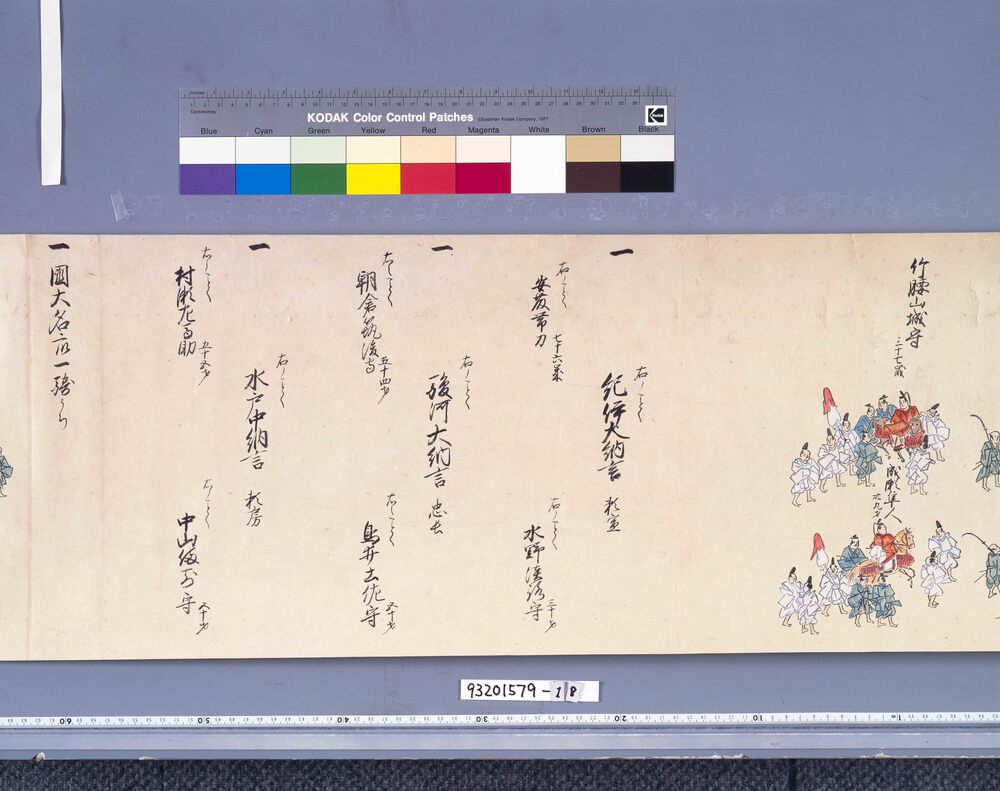 KODAK Color Control Patches
©Eastman Kodak Company, 1977
Inches
Centimetres
Blue Cyan Green Yellow Red Magenta White Brown Black
Kodak
竹腰山城守
三十七歳
成瀬隼人
一
右ノことく
紀伊大納言 頼宣
右ノことく
安藤帯刀 七十六歳
右ノことく
水野淡路守 三十才
一
右ノことく
駿河大納言 忠長
右ノことく
朝倉筑後守 五十四才
右ノことく
鳥井土佐守 五十才
一
右ノことく
水戸中納言 頼房
右ノことく
村瀬左馬助
右ノことく
中山備前守 五十才
一 國大名衆一騎うち
93201579-18